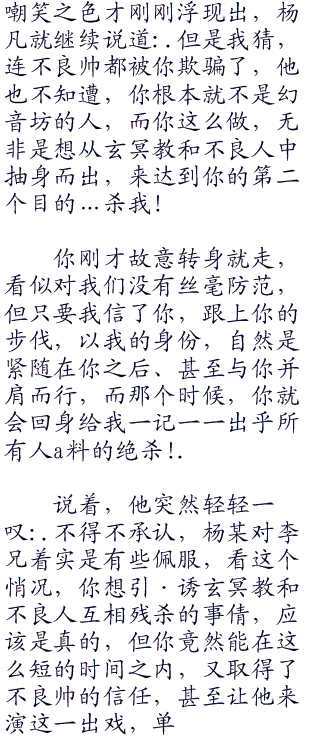 嘲笑之色才刚刚浮现出，杨
凡就继续说道:.但是我猜，
连不良帅都被你欺骗了，他
也不知遭，你根本就不是幻
音坊的人，而你这么做，无
非是想从玄冥教和不良人中
抽身而出，来达到你的第二
个目的...杀我！
你刚才故意转身就走，
看似对我们没有丝毫防范，
但只要我信了你，跟上你的
步伐，以我的身份，自然是
紧随在你之后、甚至与你并
肩而行，而那个时候，你就
会回身给我一记一一出乎所
有人a料的绝杀！.
说着，他突然轻轻一
叹:.不得不承认，杨某对李
兄着实是有些佩服，看这个
悄况，你想引·诱玄冥教和
不良人互相残杀的事倩，应
该是真的，但你竟然能在这
么短的时间之内，又取得了
不良帅的信任，甚至让他来
演这一出戏，单